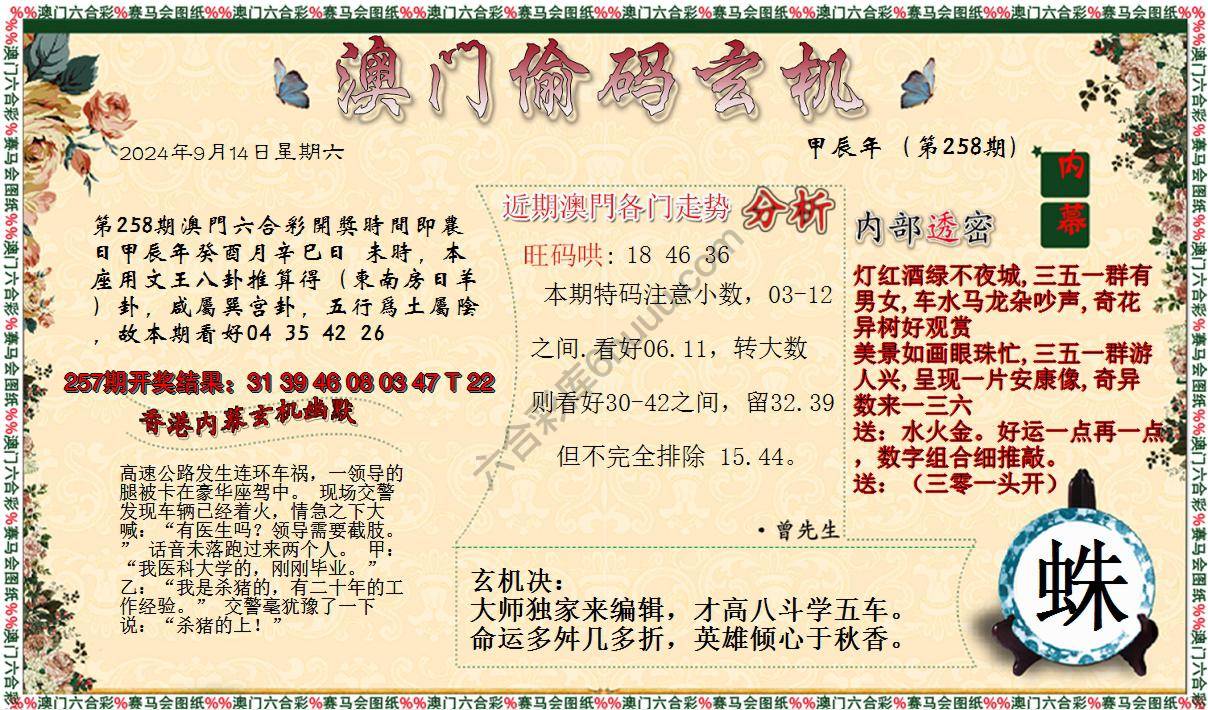 %%澳门六合彩%赛马会图纸%%澳门六合彩%赛马会图纸%%澳门六合彩%赛马会图纸%%澳门六合彩%赛马会图纸
澳门偷码玄机
2024年9月14日星期六
甲辰年（第258期）
内
幕
第258期澳門六合彩開獎時間即農
日甲辰年癸酉月辛巳日 未時，本
座用文王八卦推算得（東南房日羊
）卦，咸屬巽宫卦，五行爲土屬陰
，故本期看好04 35 42 26
257期开奖结果：31 39 46 08 03 47 T 22
香港内幕玄机幽默
高速公路发生连环车祸，一领导的
腿被卡在豪华座驾中。 现场交警
发现车辆已经着火，情急之下大
喊：“有医生吗？领导需要截肢。
” 话音未落跑过来两个人。 甲：
“我医科大学的，刚刚毕业。”
乙：“我是杀猪的，有二十年的工
作经验。” 交警毫犹豫了一下
说：“杀猪的上！”
近期澳門各门走势 分析
旺码哄: 18 46 36
本期特码注意小数，03-12
之间.看好06.11，转大数
则看好30-42之间，留32.39
但不完全排除 15.44。
·曾先生
内部透密
灯红酒绿不夜城,三五一群有
男女,车水马龙杂吵声,奇花
异树好观赏
美景如画眼珠忙,三五一群游
人兴,呈现一片安康像,奇异
数来一三六
送：水火金。好运一点再一点
，数字组合细推敲。
送：（三零一头开）
玄机决：
大师独家来编辑，才高八斗学五车。
命运多舛几多折，英雄倾心于秋香。
蛛
%%澳门六合彩%赛马会图纸%%澳门六合彩%赛马会图纸%%澳门六合彩%赛马会图纸%%澳门六合彩%赛马会图纸